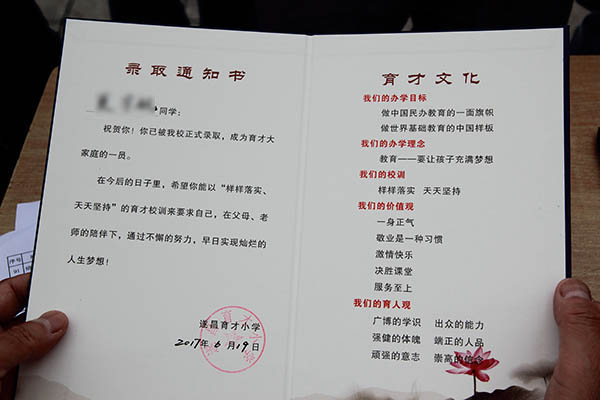 录取通知书
同学：
祝贺你！你已被我校正式录取，成为育才大
家庭的一员。
在今后的日子里，希望你能以“样样落实、
天天坚持”的育才校训来要求自己，在父母、老
师的陪伴下，通过不懈的努力，早日实现灿烂的
人生梦想！
遂昌育才小学
2017年 6 月 19 日
育才文化
我们的办学目标
做中国民办教育的一面旗帜
做世界基础教育的中国样板
我们的办学理念
教育——要让孩子充满梦想
我们的校训
样样落实 天天坚持
我们的价值观
一身正气
敬业是一种习惯
激情快乐
决胜课堂
服务至上
我们的育人观
广博的学识 出众的能力
强健的体魄 端正的人品
顽强的意志 崇高的信念
序号